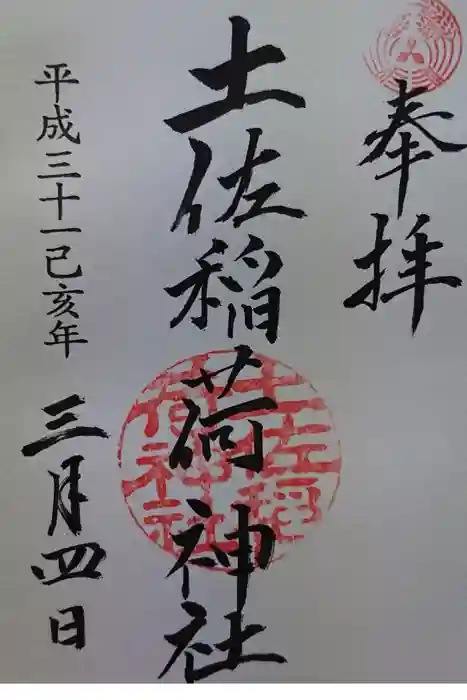 奉拝
土佐稲荷神社
土佐稲荷神社
平成三十一己亥年三月四日